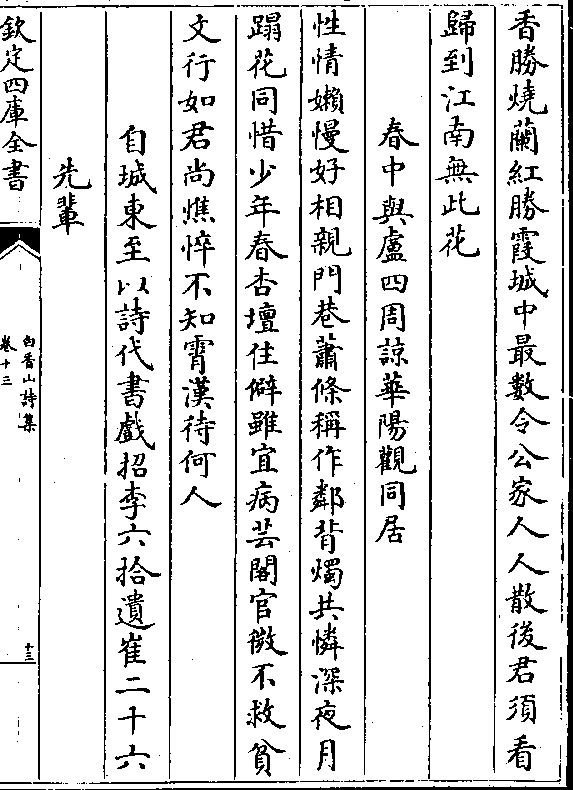 香勝燒蘭紅勝霞城中最數令公家人人散後君須看
歸到江南無此花
春中與盧四周諒華陽觀同居
性情嬾慢好相親門巷蕭條稱作鄰背燭共憐深夜月
蹋花同惜少年春杏壇住僻雖宜病芸閣官微不救貧
文行如君尚憔悴不知霄漢待何人
自城東至以詩代書戲招李六拾遺崔二十六
先輩
欽定四庫全書
白香山詩集
卷十三
十三